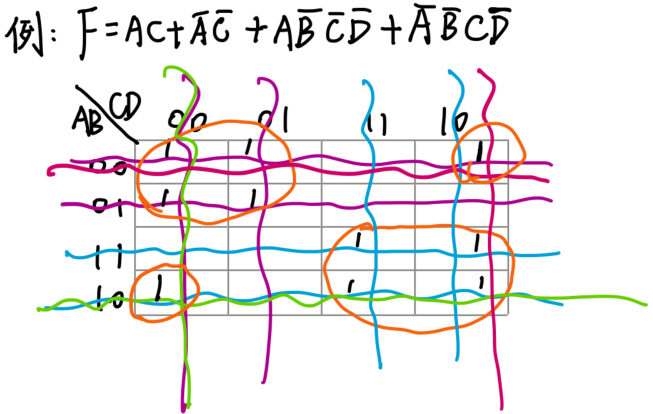 例: F=AC+A̅C̅+AB̅C̅D̅+A̅B̅CD̅
AB CD 00 01 11 10
00 1 1 1
01 1 1
11 1 1
10 1 1 1